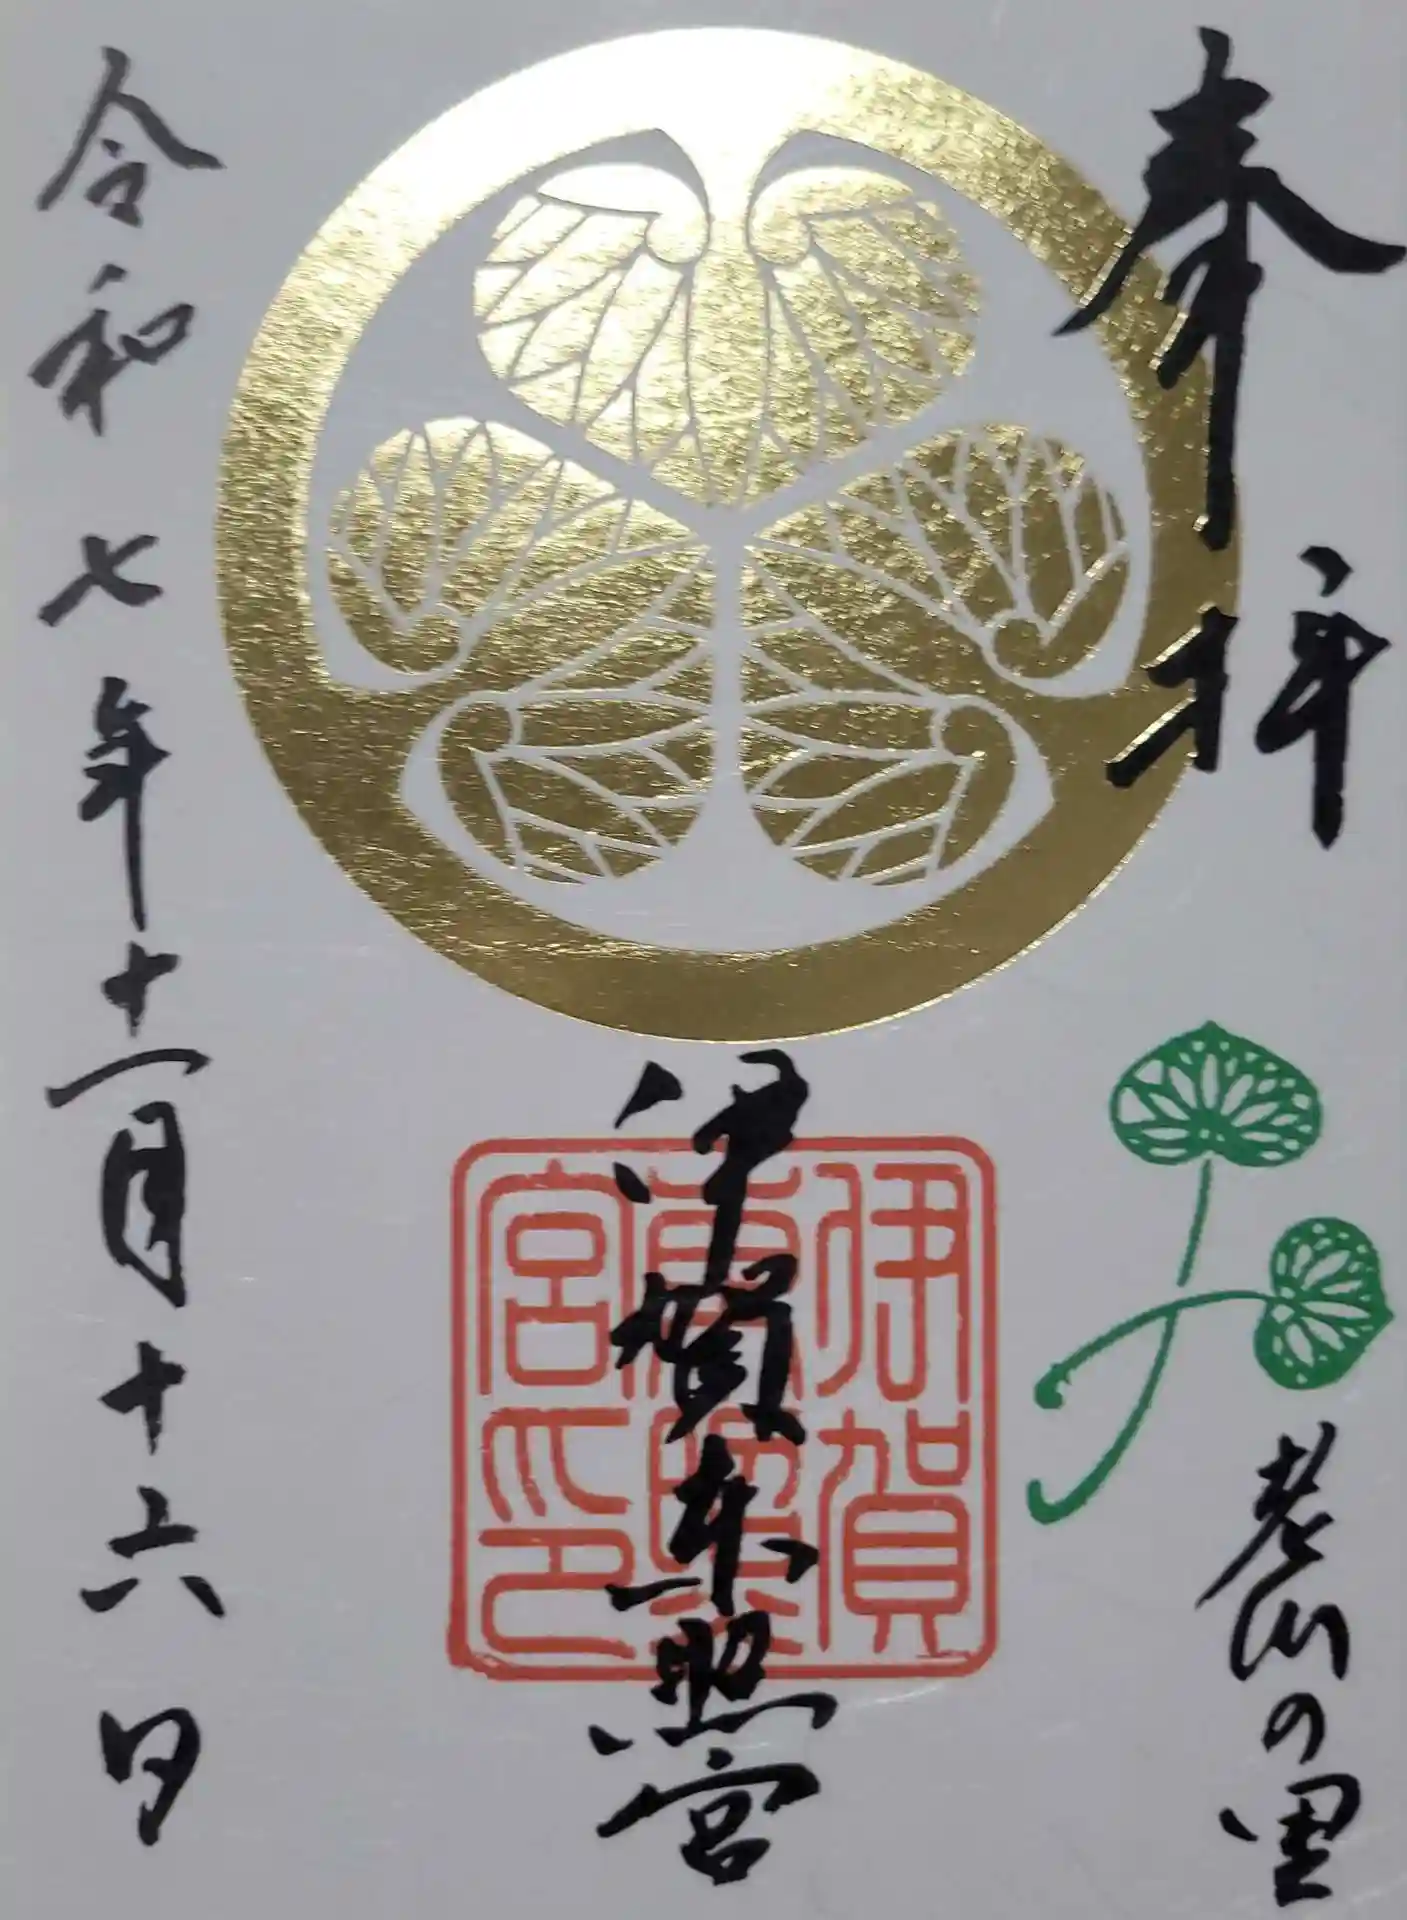 奉拝
老川の里
伊賀東照宮
伊賀
東照
宮印
令和七年十一月十六日